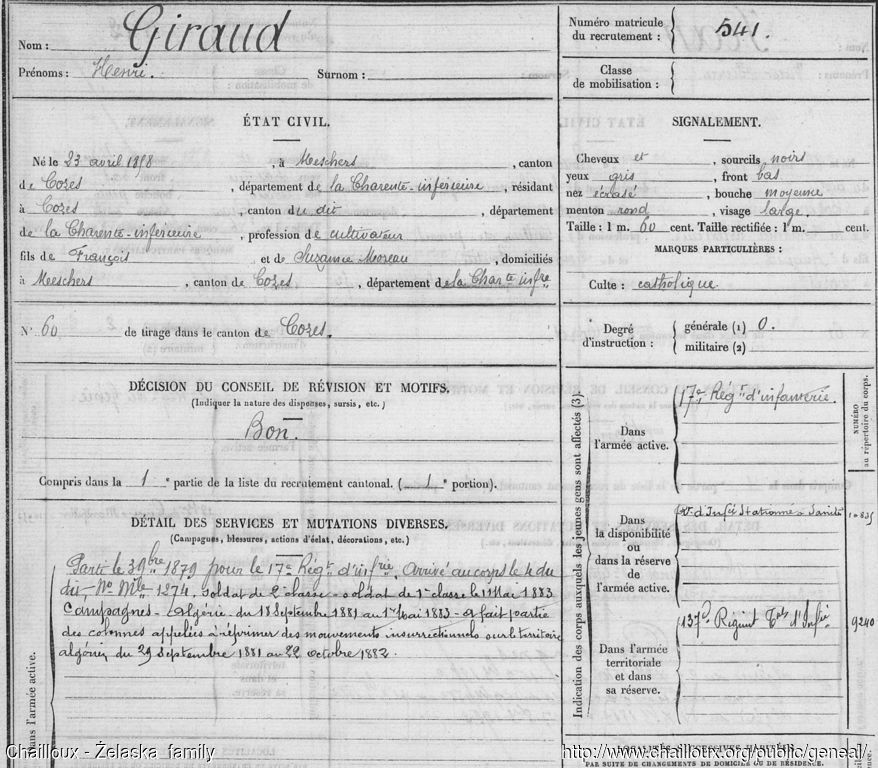 Nom : Giraud
Prénoms : Henri. Surnom :
Numéro matricule du recrutement : 541.
Classe de mobilisation :
ÉTAT CIVIL.
Né le 23 avril 1858, à Meschers, canton
de Cozes, département de la Charente-inférieure, résidant
à Cozes, canton du dit, département
de la Charente-inférieure, profession de cultivateur
fils de François et de Suzanne Moreau, domiciliés
à Meschers, canton de Cozes, département de la Charte infre
SIGNALEMENT.
Cheveux et, sourcils noirs
yeux gris, front bas
nez écrasé, bouche moyenne
menton rond, visage large.
Taille : 1 m. 60 cent. Taille rectifiée : 1 m. cent.
MARQUES PARTICULIÈRES :
Culte : catholique.
N° 60 de tirage dans le canton de Cozes.
Degré d'instruction : générale (1) 0.
militaire (2)
DÉCISION DU CONSEIL DE RÉVISION ET MOTIFS.
(Indiquer la nature des dispenses, sursis, etc.)
Bon.
Compris dans la 1e partie de la liste du recrutement cantonal. (1e portion).
DÉTAIL DES SERVICES ET MUTATIONS DIVERSES.
(Campagnes, blessures, actions d'éclat, décorations, etc.)
Parti le 3 9bre 1879 pour le 17e Régt d'infrie. Arrivé au corps le 4 du
dit - No Mle 1274. Soldat de 2e classe - soldat de 1e classe le 1 Mai 1883
Campagnes - Algérie du 18 Septembre 1881 au 1er Mai 1883 - a fait partie
des colonnes appelées à réprimer des mouvements insurrectionnels sur le territoire
algérien du 29 Septembre 1881 au 22 Octobre 1882.
Dans l'armée active.
Indication des corps auxquels les jeunes gens sont affectés (3).
NUMÉRO au répertoire du corps.
Dans l'armée active.
17e Régt d'infanterie.
Dans la disponibilité ou dans la réserve de l'armée active.
d'Infie Stationné à Saintes
10835
Dans l'armée territoriale et dans sa réserve.
137e Régimt d'Infie
9240
PAR SUITE DE CHANGEMENTS DE DOMICILE OU DE RÉSIDENCE.
Chailloux - Želaska family
http://www.chaillotrx.org/public/geneal/